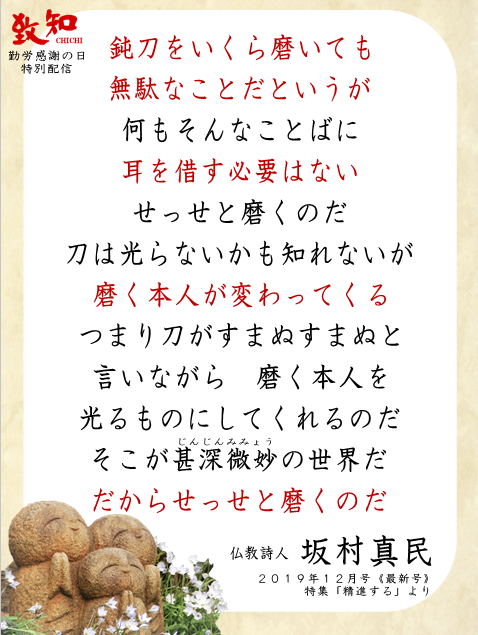 致知
CHICHI
勤労感謝の日
特別配信
鈍刀をいくら磨いても
無駄なことだというが
何もそんなことばに
耳を借す必要はない
せっせと磨くのだ
刀は光らないかも知れないが
磨く本人が変わってくる
つまり刀がすまぬすまぬと
言いながら　磨く本人を
光るものにしてくれるのだ
じんじんみみょう
そこが甚深微妙の世界だ
だからせっせと磨くのだ
仏教詩人 坂村真民
2019年12月号《最新号》
特集「精進する」より